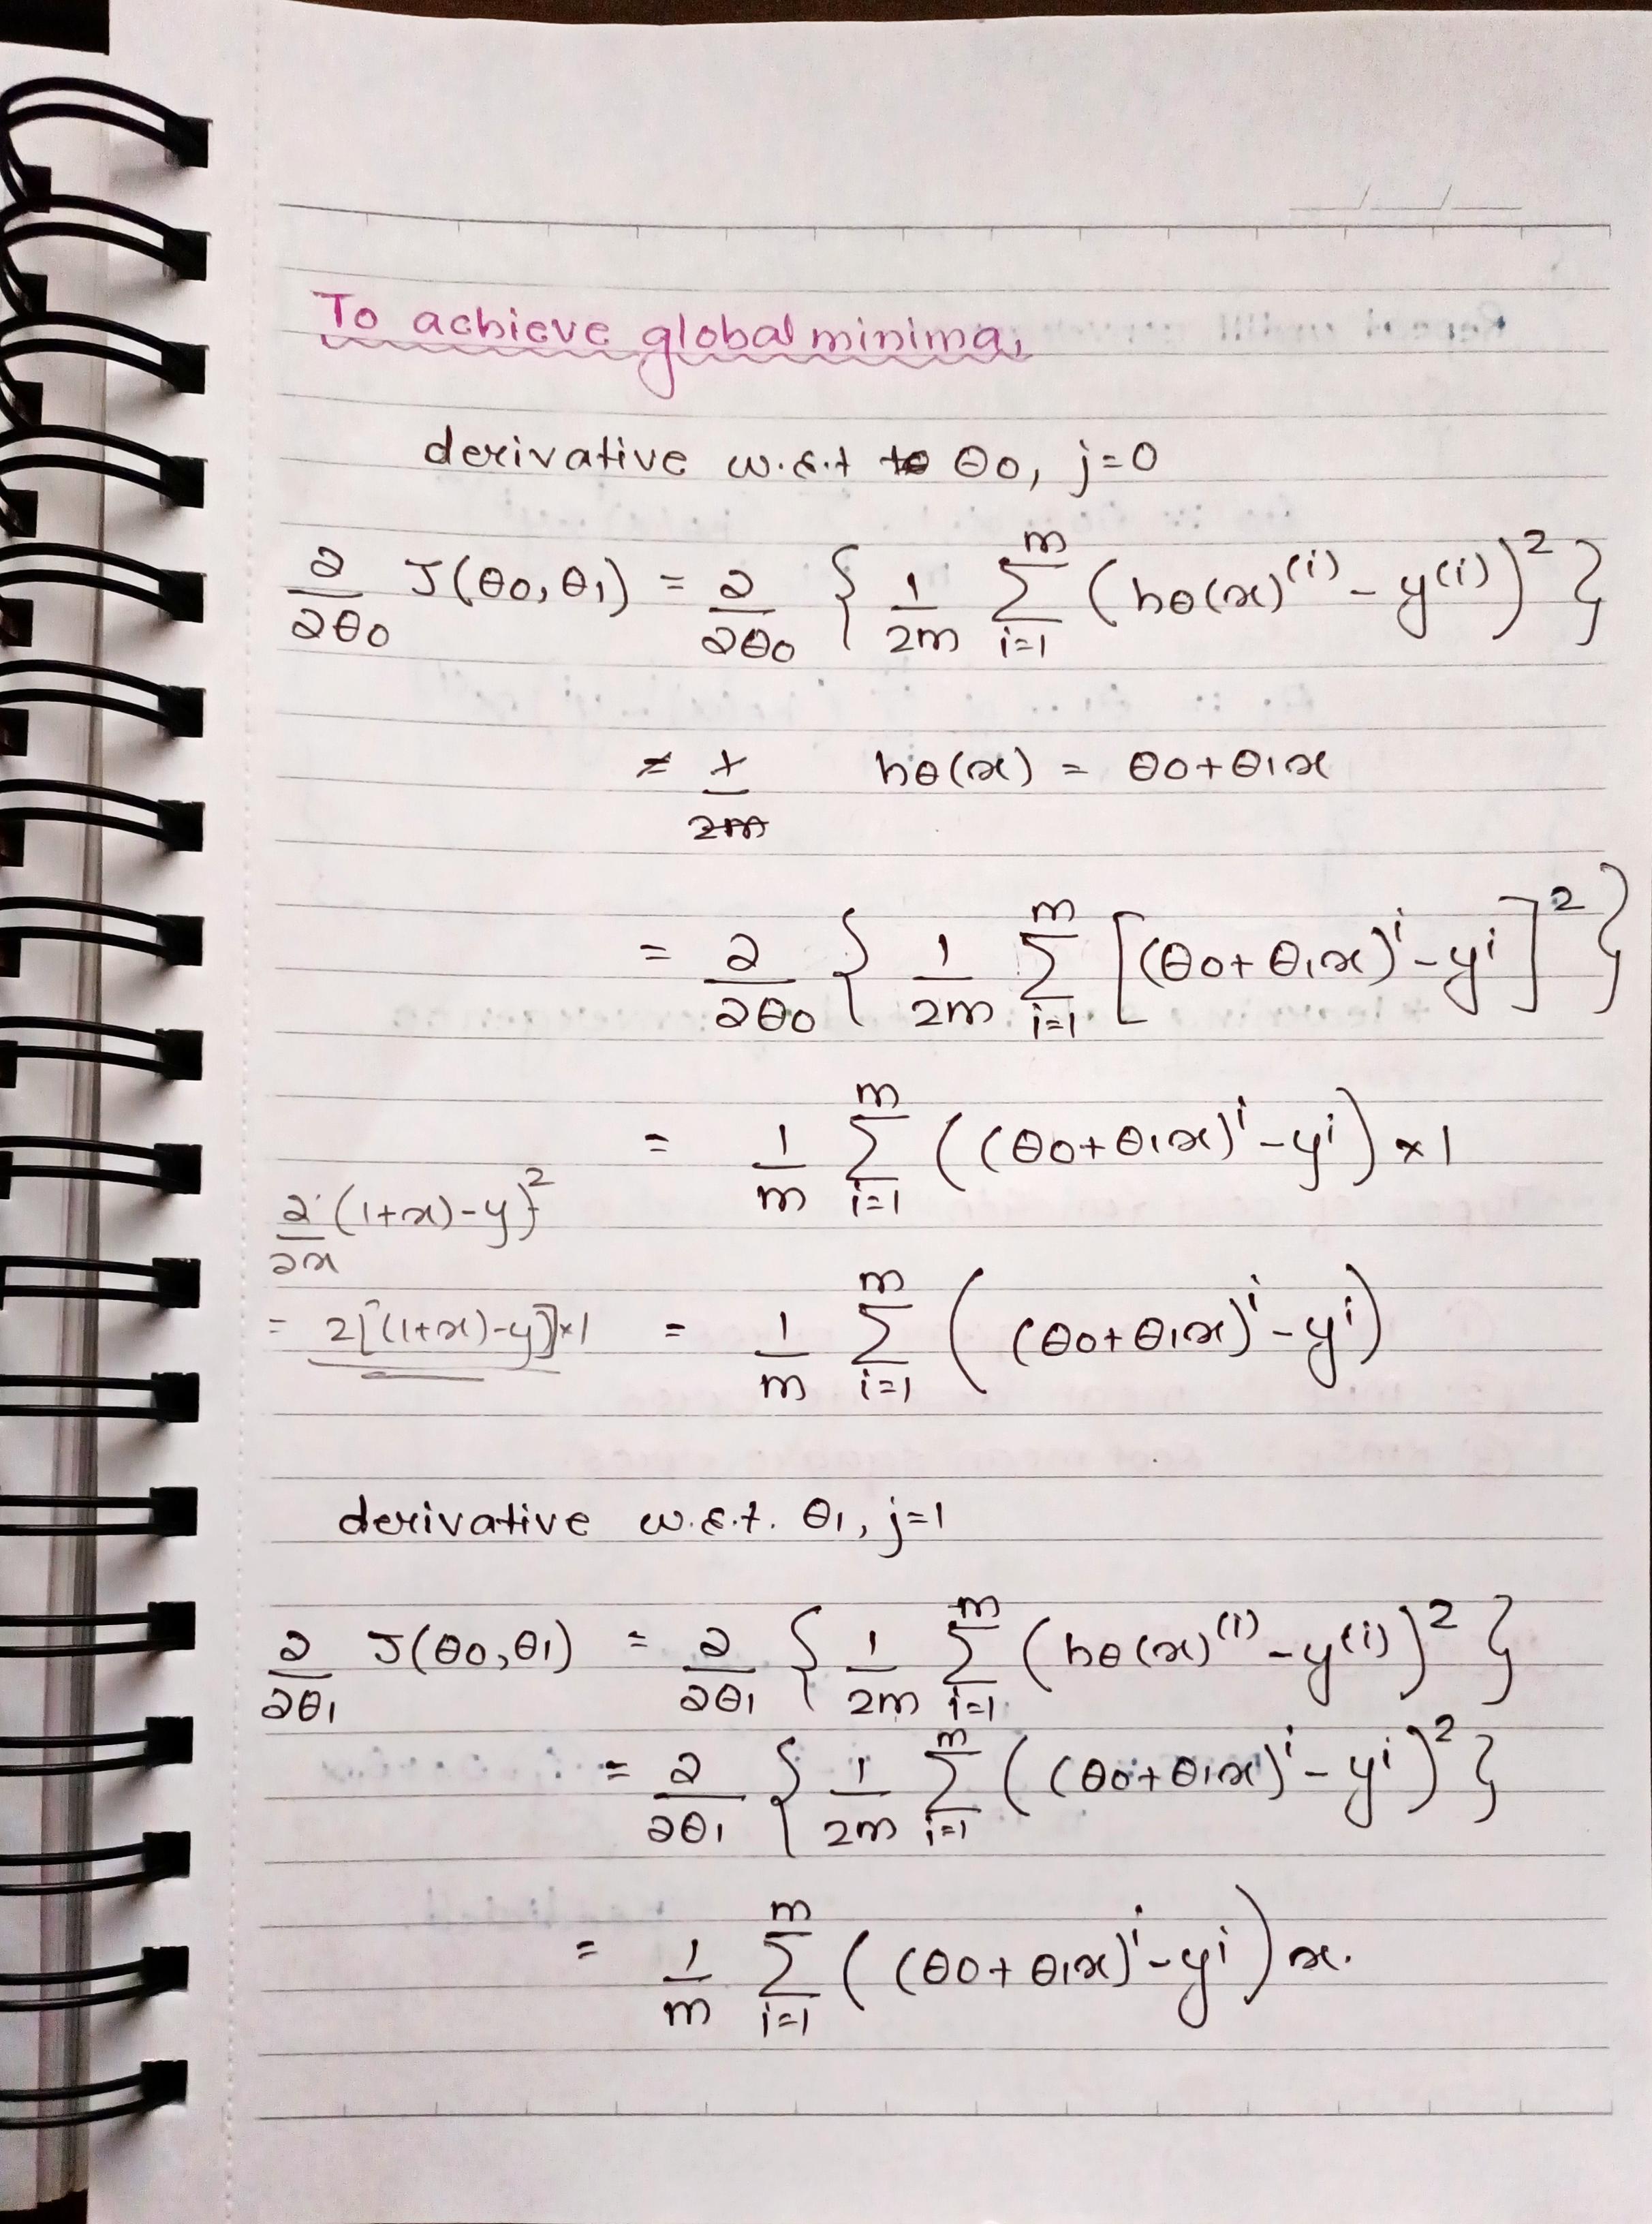 To achieve global minima,
derivative w.r.t to θ0, j=0
∂/∂θ0 J(θ0, θ1) = ∂/∂θ0 { 1/2m Σ_{i=1}^{m} (hθ(x)^(i) - y^(i))^2 }
= 1/2m hθ(x) = θ0+θ1x
= ∂/∂θ0 { 1/2m Σ_{i=1}^{m} [(θ0+θ1x)^i - y^i]^2 }
= 1/m Σ_{i=1}^{m} ((θ0+θ1x)^i - y^i) × 1
∂/∂x (1+x)-y}^2
= 2[(1+x)-y]×1
= 1/m Σ_{i=1}^{m} ((θ0+θ1x)^i - y^i)
derivative w.r.t. θ1, j=1
∂/∂θ1 J(θ0,θ1) = ∂/∂θ1 { 1/2m Σ_{i=1}^{m} (hθ(x)^(i) - y^(i))^2 }
= ∂/∂θ1 { 1/2m Σ_{i=1}^{m} ((θ0+θ1x)^i - y^i)^2 }
= 1/m Σ_{i=1}^{m} ((θ0+θ1x)^i - y^i) x.